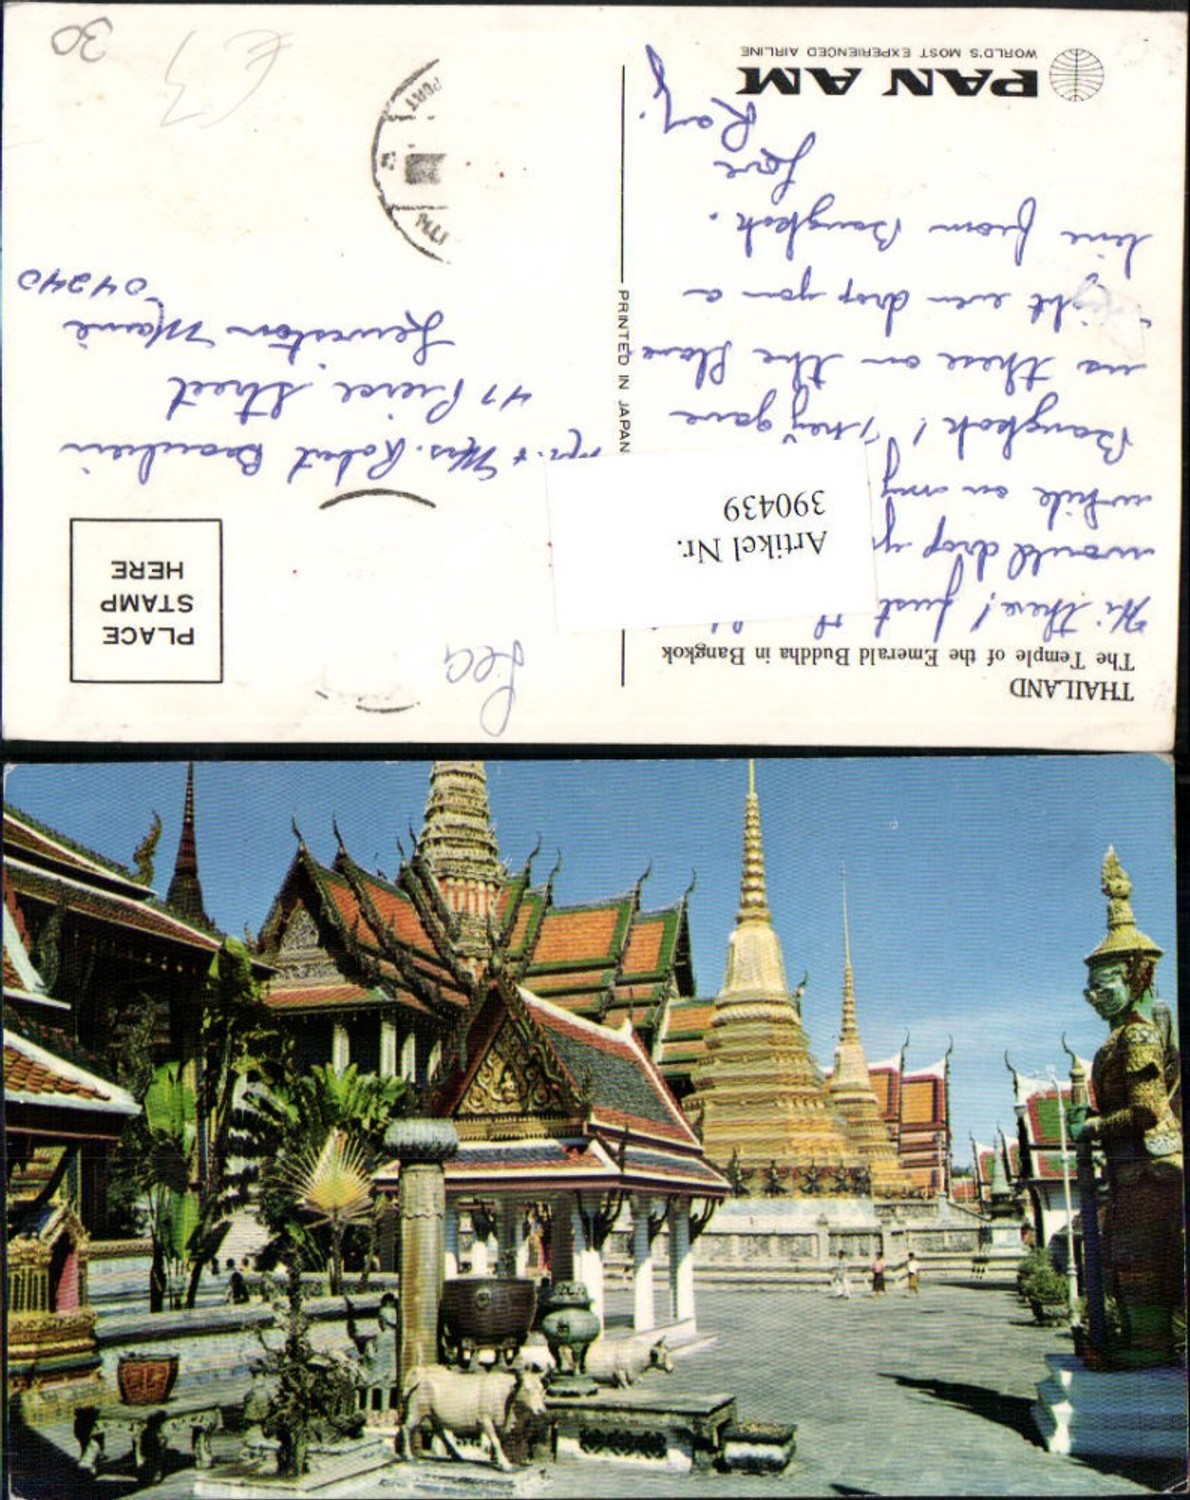 THAILAND
The Temple of the Emerald Buddha in Bangkok
Hi there! Just
would drop
while on my
Bangkok! They gave
us these on the plane
might even drop you a
line from Bangkok.
Love
Ray
PAN AM
WORLD'S MOST EXPERIENCED AIRLINE
PRINTED IN JAPAN
Artikel Nr.
390439
PLACE
STAMP
HERE
Mr. + Mrs. Robert Beaulieu
47 Pierce Street
Lewiston Maine
04240
PORT
30